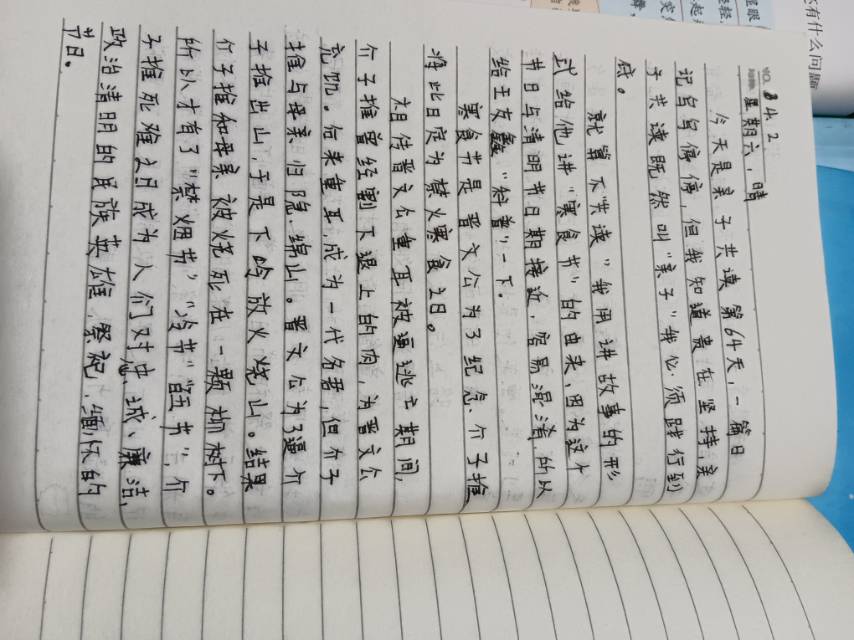 4.2
星期六,晴
今天是亲子共读第64天,一篇日
记写写停停,但我知道贵在坚持,亲
子共读既然叫“亲子”我必须践行到
底。
就算不“共读”我用讲故事的形
式给他讲“寒食节”的由来,因为这个
节日与清明节日期接近,容易混淆,所以
给王友鑫“科普”一下。
寒食节是晋文公为了纪念、介子推
将此日定为禁火寒食之日。
相传晋文公重耳被逼逃亡期间,
介子推曾经割下退上的肉,为晋文公
充饥。后来重耳,成为一代名君,但介子
推与母亲归隐、绵山。晋文公为了逼介
子推出山,于是下吟放火烧山。结果
介子推和母亲被烧死在一颗柳树下。
所以才有了“禁烟节”“冷节”,介
子推死难之日成为人们对忠、诚、廉洁,
政治清明的民族英雄,祭祀,缅怀的
节日。
还有什么问题